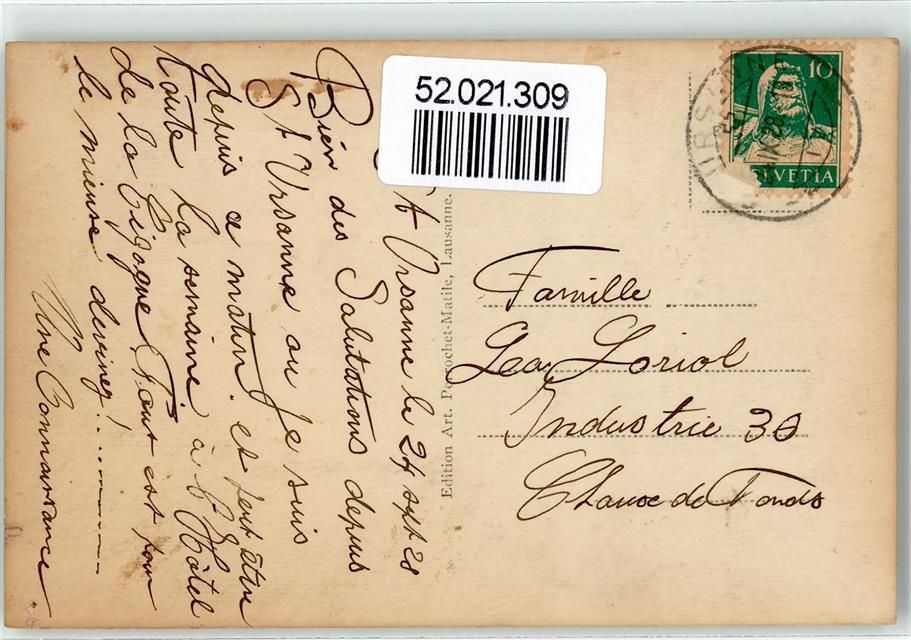 52.021.309
St Ursanne le 24 sept 28
Bien des Salutations depuis
St Ursanne ou Je suis
depuis ce matin. et peut être
toute la semaine à l'Hôtel
de la Cigogne Tout est pour
le mieux devinez!..........
Une Connaissance
Edition Art. Perrochet-Matile, Lausanne.
10
HELVETIA
Famille
Loriol
Industrie 30
Chaux de Fonds